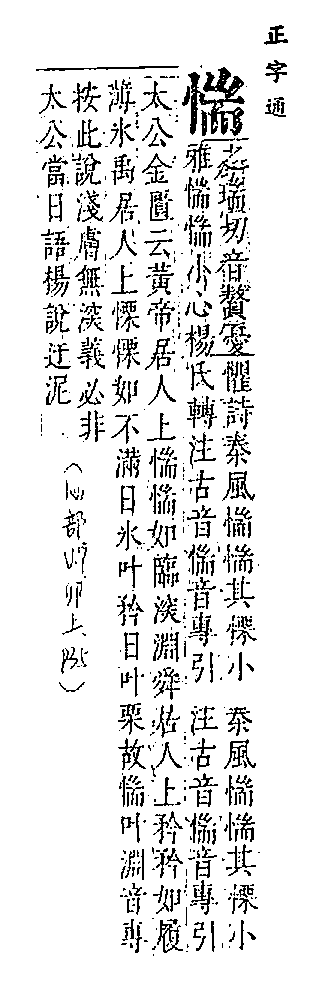 正字通
惴
之瑞切音贅憂懼詩秦風惴惴其慄小 秦風惴惴其慄小
雅惴惴小心楊氏轉注古音惴音專引 注古音惴音專引
太公金匱云黃帝居人上惴惴如臨深淵舜居人上矜矜如履
薄氷禹居人上慄慄如不滿日氷叶矜日叶栗故惴叶淵音專
按此說淺膚無深義必非
太公當日語楊說迂泥
(心部 卯上